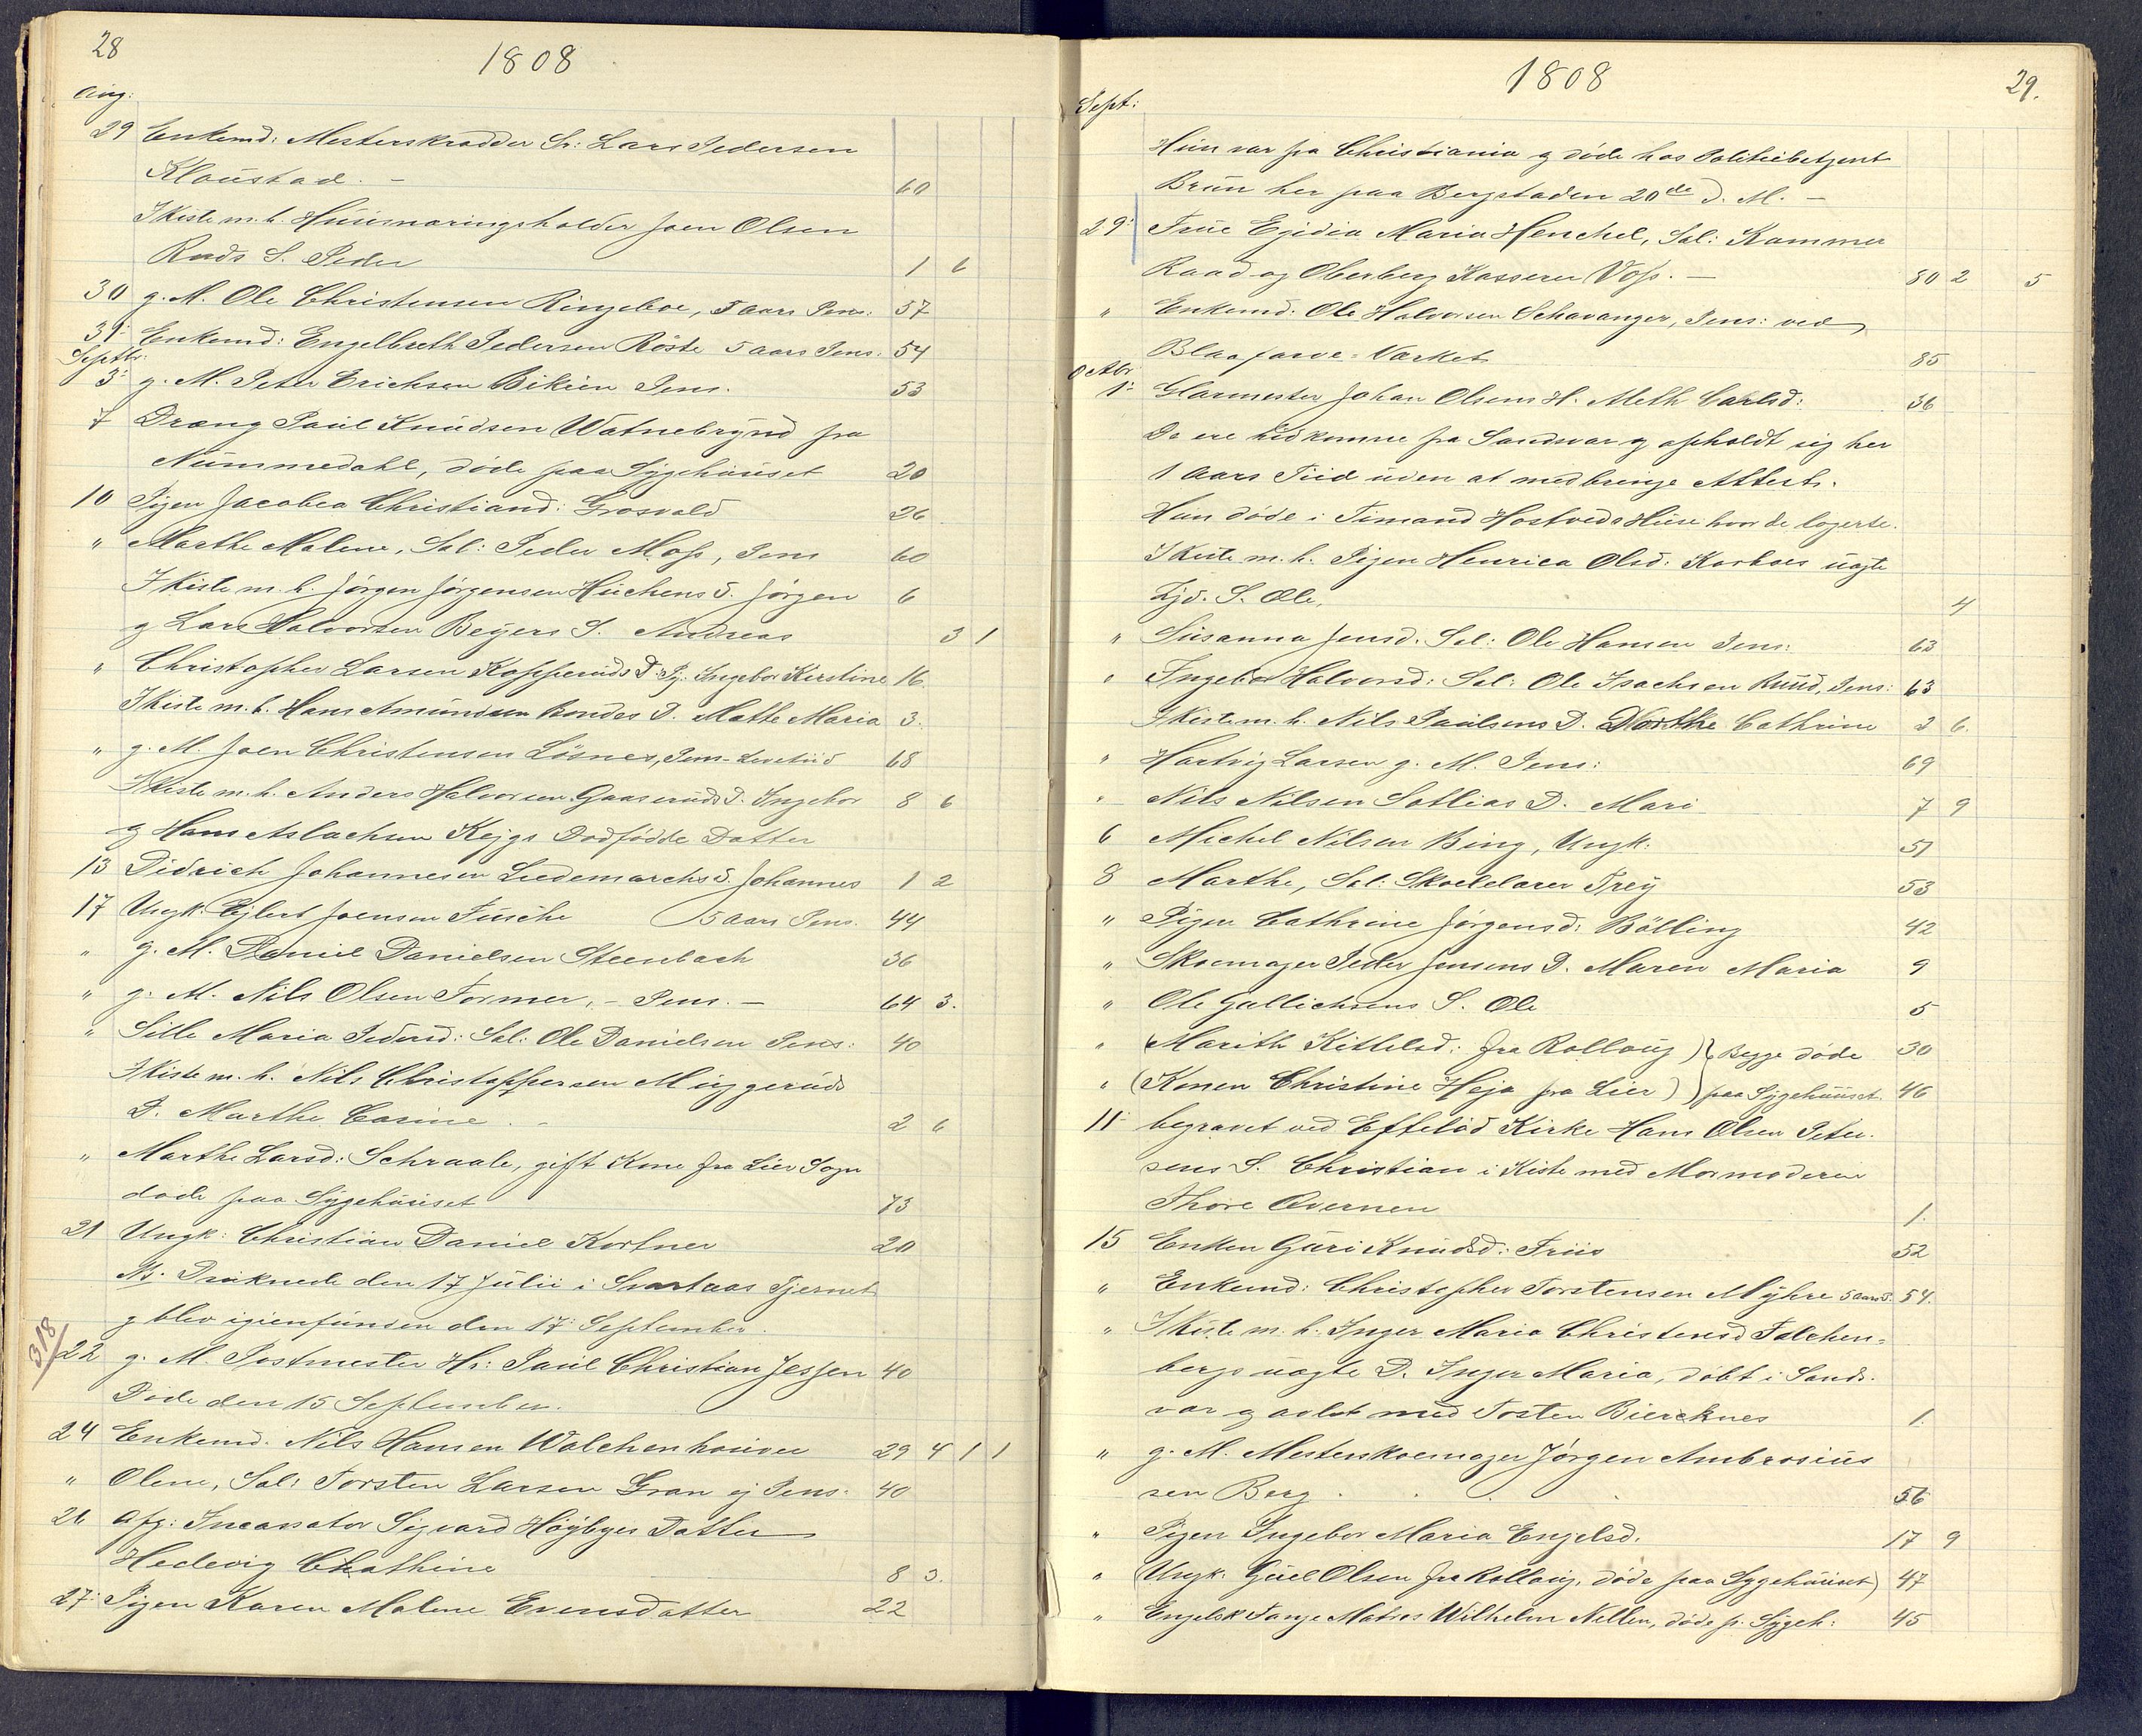 28
1808
Aug:
29 Enkemd: Mesterskrædder Sr: Lars Pedersen
Kloustad. — 60
I Kiste m. h. Huusnæringsholder Joen Olsen
Ruds S. Peder 1 6
30 g. M. Ole Christensen Ringeboe, 5 aars Pens: 57
31: Enkemd: Engelbreth Pedersen Röste 5 aars Pens. 54
Septbr:
3: g. M. Peter Erichsen Bikien Pens. 53
7 Dræng Paul Knudsen Watnebrynd fra
Nummedahl, döde paa Sygehuuset 20
10 Pigen Jacobea Christiand: Grosvald 26
" Marthe Malene, Sal: Peder Moss, Pens 60
I Kiste m. h. Jörgen Jörgensen Huchens S. Jörgen 6
g Lars Halvorsen Beyers S. Andreas 3 1
" Christopher Larsen Kopperuds D. Pg. Ingebor Kirstine 16
I Kiste m. h. Hans Amundsen Bondes D. Mathe Maria 3.
" g. M. Joen Christensen Lösnes, Pens. Levetiid 68
I Kiste m. h. Anders Halvorsen Gaaseruds D. Ingebor 8 6
g Hans Aslachsen Kejgs Dödfödde Datter
13 Didrich Johannesen Liedemarchs S. Johannes 1 2
17 Ungk: Ejlert Joensen Fusche 5 aars Pens. 44
" g. M. Daniel Danielsen Steenbach 36
" g. M. Nils Olsen Former, — Pens. — 64 3.
" Sille Maria Pedersd: Sal: Ole Danielsen Pens: 40
I Kiste m. h. Nils Christoffersen Muggeruds
D. Marthe Casine. — 2 6
" Marthe Larsd: Schraale, gift Kone fra Lier Sogn
döde paa Sygehuuset 73
21 Ungk: Christian Daniel Kortner 20
NB. Druknede den 17 Julii i Svartaas Tjernet
g blev igienfunden den 17: September.
318
22 g. M. Postmester Hr: Paul Christian Jessen 40
Döde den 15 September.
24 Enkemd. Nils Hansen Walchenhouver 29 4 1 1
" Olene, Sal: Torsten Larsen Gran ej Pens. 40
26 Afg: Incassator Sigvard Höybyes Datter
Hedevig Chathine 8 3.
27: Pigen Karen Malene Evensdatter 22
1808
29.
Sept:
Hun var fra Christiania g döde hos Politiebetjent
Bruun her paa Bergstaden 20de d. M. —
29: Frue Egidia Maria Henchel, Sal: Kammer
Raad og Oberberg Kasserer Voss. — 80 2 5
" Enkemd: Ole Halvorsen Schavanger, Pens: ved
Blaafarve-Værket 85
Octbr
1: Glarmester Johan Olsens H. Meth Carlsd: 36
De ere hidkomne fra Sandsvær g opholdt sig her
1 Aars Tiid uden at medbringe Attest.
Hun döde i Timand Hostveds Huse hvor de logerte.
I Kiste m. h. Pigen Henrica Olsd: Korboes uægte
Ljd. S. Ole, 4
" Susanna Jensd. Sal: Ole Hansen Pens: 63
" Ingebor Halvorsd: Sal: Ole Isachsen Ruud, Pens: 63
I Kiste m. h. Nils Paulsens D. Dorthe Cathrine 2 6.
" Hartvig Larsen g. M. Pens: 69
" Nils Nilsen Sotlias D. Mari 7 9
6 Michel Nilsen Bing, Ungk: 51
8 Marthe, Sal: Skoelelærer Frey 53
" Pigen Cathrine Jörgensd: Bölling 42
" Skomager Peder Jensens D. Maren Maria 9
" Ole Gullichsens S. Ole 5
" (Marith Kittelsd: fra Rolloug) } Begge döde 30
" (Konen Christine Heja fra Lier) } paa Sygehuuset. 46
11: begravet ved Eftelöd Kirke Hans Olsen Peter-
sens S. Christian i Kiste med Mormoderen
Thore Overnen 1.
15 Enken Guri Knudsd: Friis 52
" Enkemd: Christopher Torstensen Myhre 5 aars P. 54.
" I Kiste m. h. Inger Maria Christensd Falchen=
bergs uægte D. Inger Maria, döbt i Sands-
vær g avlet med Tosten Biercknes 1.
" g. M. Mesterskomager Jörgen Ambrosius
sen Berg . . . 56
" Pigen Ingebor Maria Engelsd: 17 9
" (Ungk: Guel Olsen fra Rolloug, döde paa Sygehuuset) 47
" Engelsk Fange Mates Wilhelm Nellen, döde p. Sygeh: 45